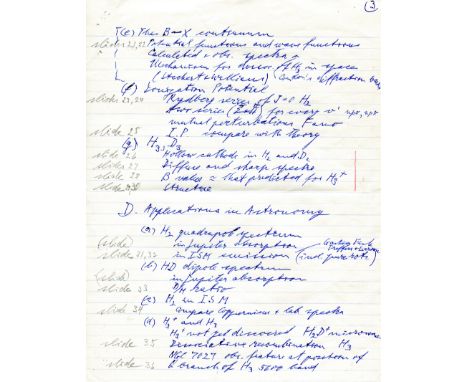 3
(e) The B–X continuum
slide 21,22 Potential functions and wave functions
Calculated + obs. spectra
Mechanism for dissoc. of H2 in space
(Stecher + Williams) Condon's diffraction bands
(f) Ionization Potential
slide 23,24 Rydberg series of J=0 H2
two series for every v' npσ, npπ
mutual perturbations Fano
slide 25 I.P. compare with theory
(g) H3, D3
slide 26 Hollow cathode in H2 and D2
slide 27 Diffuse and sharp spectra
slide 28 B value = that predicted for H3+
slide structure
D. Applications in Astronomy
(a) H2 quadrupole spectrum
(slide) in Jupiter absorption
slide 31,32 in ISM emission (incl pure rot.)
(b) HD dipole spectrum
(slide) in Jupiter absorption
slide 33 D/H ratio
(c) H2 in ISM
slide 34 compare Copernicus + lab spectra
(d) H3+ and H3
H3+ not yet discovered H2D+ microwave
slide 35 Dissociative recombination H3
NGC 7027 obs. feature at position of
slide 36 Q branch of H3 5600 band